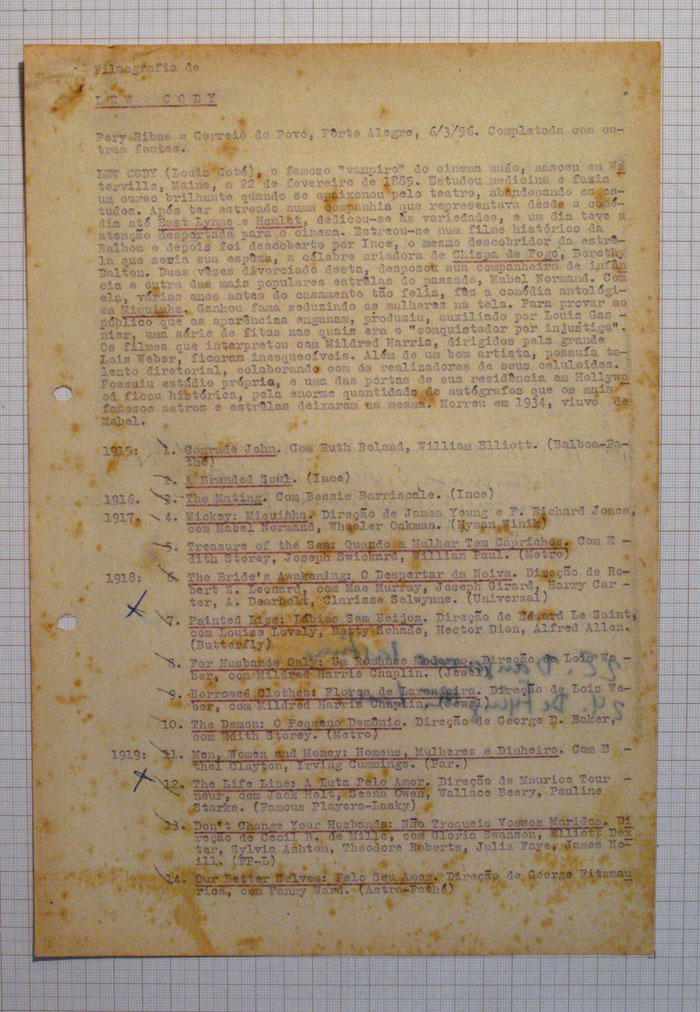 Filmografia de
LEW CODY
Pery Ribas = Correio do Povo, Porto Alegre, 6/3/56. Completada com ou-
tras fontes.
LEW CODY (Louis Coté), o famoso "vampiro" do cinema mudo, nasceu em Wa
terville, Maine, a 22 de fevereiro de 1885. Estudou medicina e fazia
um curso brilhante quando se apaixonou pelo teatro, abandonando os es-
tudos. Após ter estreado numa companhia que representava desde a comé-
dia até East Lynne e Hamlet, dedicou-se às variedades, e um dia teve a
atenção despertada para o cinema. Estreou-se num filme histórico da
Balboa e depois foi descoberto por Ince, o mesmo descobridor da estrê-
la que seria sua espôsa, a célebre criadora de Chispa de Fogo, Dorothy
Dalton. Duas vêzes divorciado desta, desposou sua companheira de infân
cia e outra das mais populares estrêlas do passado, Mabel Normand. Com
ela, vários anos antes do casamento tão feliz, fez a comédia antológi-
ca Miquinha. Ganhou fama seduzindo as mulheres na tela. Para provar ao
público que as aparências enganam, produziu, auxiliado por Louis Gas -
nier, uma série de fitas nas quais era o "conquistador por injustiça".
Os filmes que interpretou com Mildred Harris, dirigidos pela grande
Lois Weber, ficaram inesquecíveis. Além de um bom artista, possuía ta-
lento diretorial, colaborando com os realizadores de seus celuloides.
Possuiu estúdio própria, e uma das portas de sua residência em Hollywo
od ficou histórica, pela enorme quantidade de autógrafos que os mais
famosos astros e estrêlas deixaram na mesma. Morreu em 1934, viuvo de
Mabel.
1915: 1. Comrade John. Com Ruth Roland, William Elliott. (Balboa-Pa-
thé)
2. A Branded Soul. (Ince)
1916. 3. The Mating. Com Bessie Barriscale. (Ince)
1917. 4. Mickey: Miquinha. Direção de James Young e F. Richard Jones,
com Mabel Normand, Wheeler Oakman. (Hyman Winik)
5. Treasure of the Sea: Quando a Mulher Tem Caprichos. Com E -
dith Storey, Joseph Swickard, William Paul. (Metro)
1918: 6. The Bride's Awakening: O Despertar da Noiva. Direção de Ro-
bert Z. Leonard, com Mae Murray, Joseph Girard, Harry Car -
ter, A. Dearholt, Clarisse Selwynne. (Universal)
7. Painted Lips: Lábios Sem Beijos. Direção de Eduard Le Saint,
com Louise Lovely, Betty Schade, Hector Dion, Alfred Allen.
(Butterfly)
8. For Husbands Only: Um Romance Moderno. Direção de Lois We -
ber, com Mildred Harris Chaplin. (Jewel)
9. Borrowed Clothes: Flores de Laranjeira. Direção de Lois We-
ber, com Mildred Harris Chaplin. (Jewel)
10. The Demon: O Pequeno Demônio. Direção de George D. Baker,
com Edith Storey. (Metro)
1919: 11. Men, Women and Money: Homens, Mulheres e Dinheiro. Com E -
thel Clayton, Yrving Cummings. (Par.)
12. The Life Line: A Luta Pelo Amor. Direção de Maurice Tour -
neur, com Jack Holt, Seena Owen, Wallace Beery, Pauline
Starke. (Famous Players-Lasky)
13. Don't Change Your Husbands: Não Troqueis Vossos Maridos. Di
reção de Cecil B. de Mille, com Gloria Swanson, Elliott Dex
ter, Sylvia Ashton, Theodore Roberts, Julia Faye, James Ne-
ill. (FP-L)
14. Our Better Selves: Pelo Seu Amor. Direção de George Fitzmau
rice, com Fanny Ward. (Astra-Pathé)